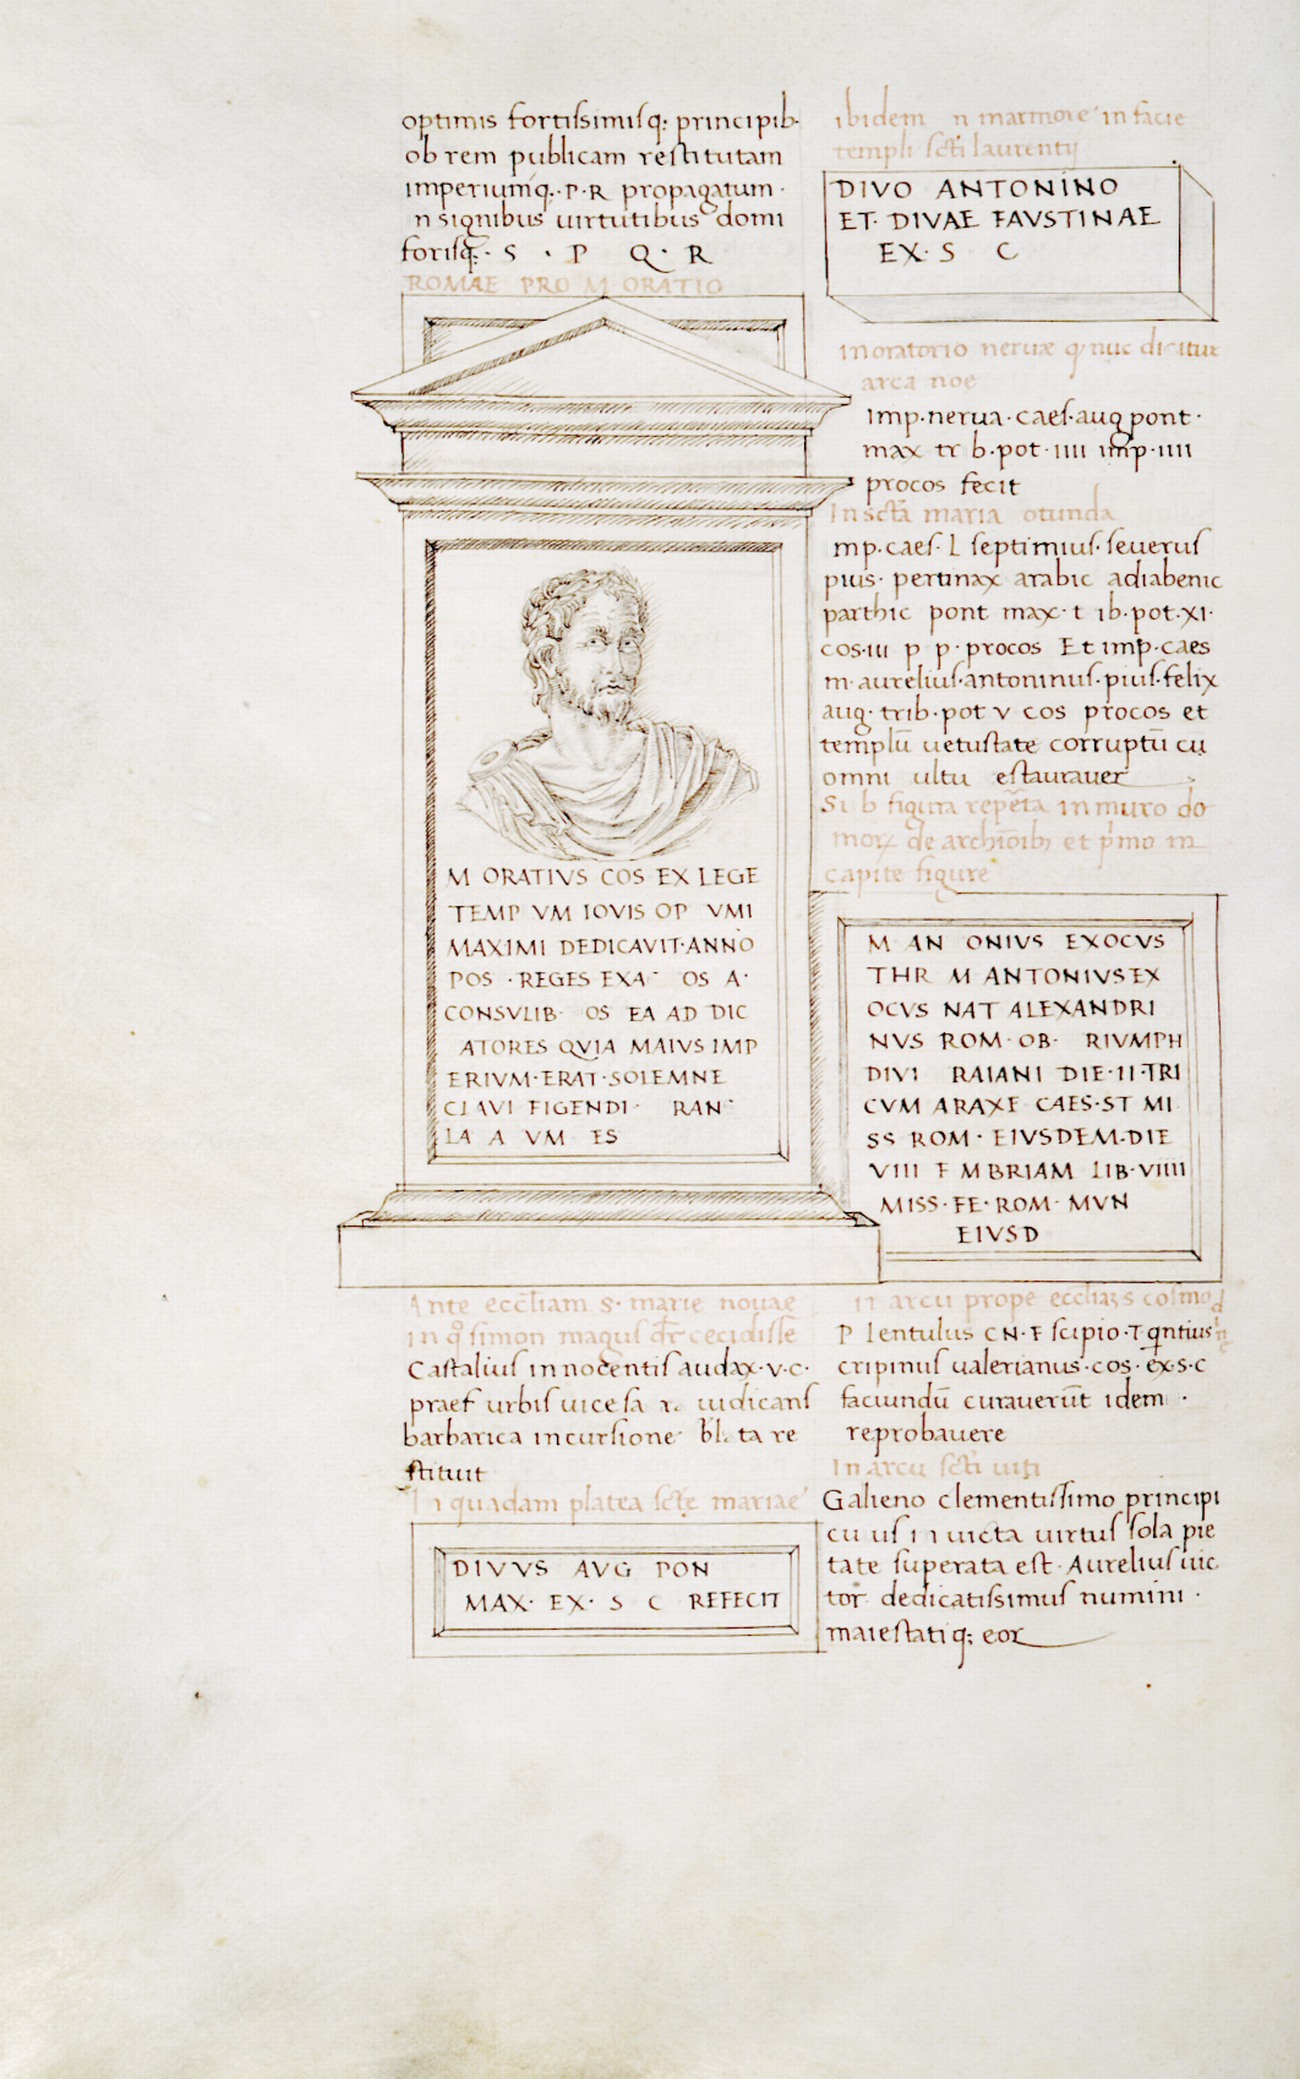 optimis fortissimisq; principib·
ob rem publicam restitutam
imperiumq·P·R propagatum·
nsignibus uirtutibus domi
forisq· S · P Q· R
ROMAE PRO M ORATIO
M ORATIVS COS EX LEGE
TEMP VM IOVIS OP VMI
MAXIMI DEDICAVIT·ANNO
POS ·REGES EXA OS A·
CONSVLIB· OS EA AD DIC
ATORES QVIA MAIVS IMP
ERIVM·ERAT·SOLEMNE
CLAVI FIGENDI· RAN
LA A VM ES
Ante eccliam S· marie nouae
in qo simon magus dr cecidisse
Castalius innocentis audax·v·c·
praef urbis uice sa r iudicans
barbarica incursione bla ta re
stituit
In quadam platea scte mariae
DIVVS AVG PON
MAX· EX· S C REFECIT
ibidem n marmore in facie
templi scti laurentij
DIVO ANTONINO
ET· DIVAE FAVSTINAE
EX· S C
in oratorio neruæ q nuc dicitur
arca noe
imp·nerua·caes·aug pont·
max tr b·pot·iiii imp·iiii
procos fecit
In scta maria otunda
mp·caes· L septimius·seuerus
pius· pertinax arabic adiabenic
parthic pont max·t ib·pot·xi·
cos·iii p p·procos Et imp·caes
m·aurelius·antoninus·pius·felix
aug·trib·pot v cos procos et
templū uetustate corruptū cū
omni ultu estaurauer
Sub figura repēta in muro do
mor de archionib et pimo in
capite figure
M AN ONIVS EXOCVS
THR M ANTONIVS EX
OCVS NAT ALEXANDRI
NVS ROM·OB· RIVMPH
DIVI RAIANI DIE·II·TRI
CVM ARAXE CAES·ST MI
SS ROM· EIVSDEM·DIE
VIII F MBRIAM LIB·VIIII
MISS·FE·ROM·MVN
EIVSD
in arcu prope eccliaz s cosmo
P lentulus CN·F scipio·T qntius
cripinus ualerianus·cos·ex·s·c
faciundū curauerūt idem ·
reprobauere
In arcu scti uiti
Galieno clementissimo principi
cu us inuicta uirtus sola pie
tate superata est·Aurelius uic
tor dedicatissimus numini ·
maiestatiq; eor